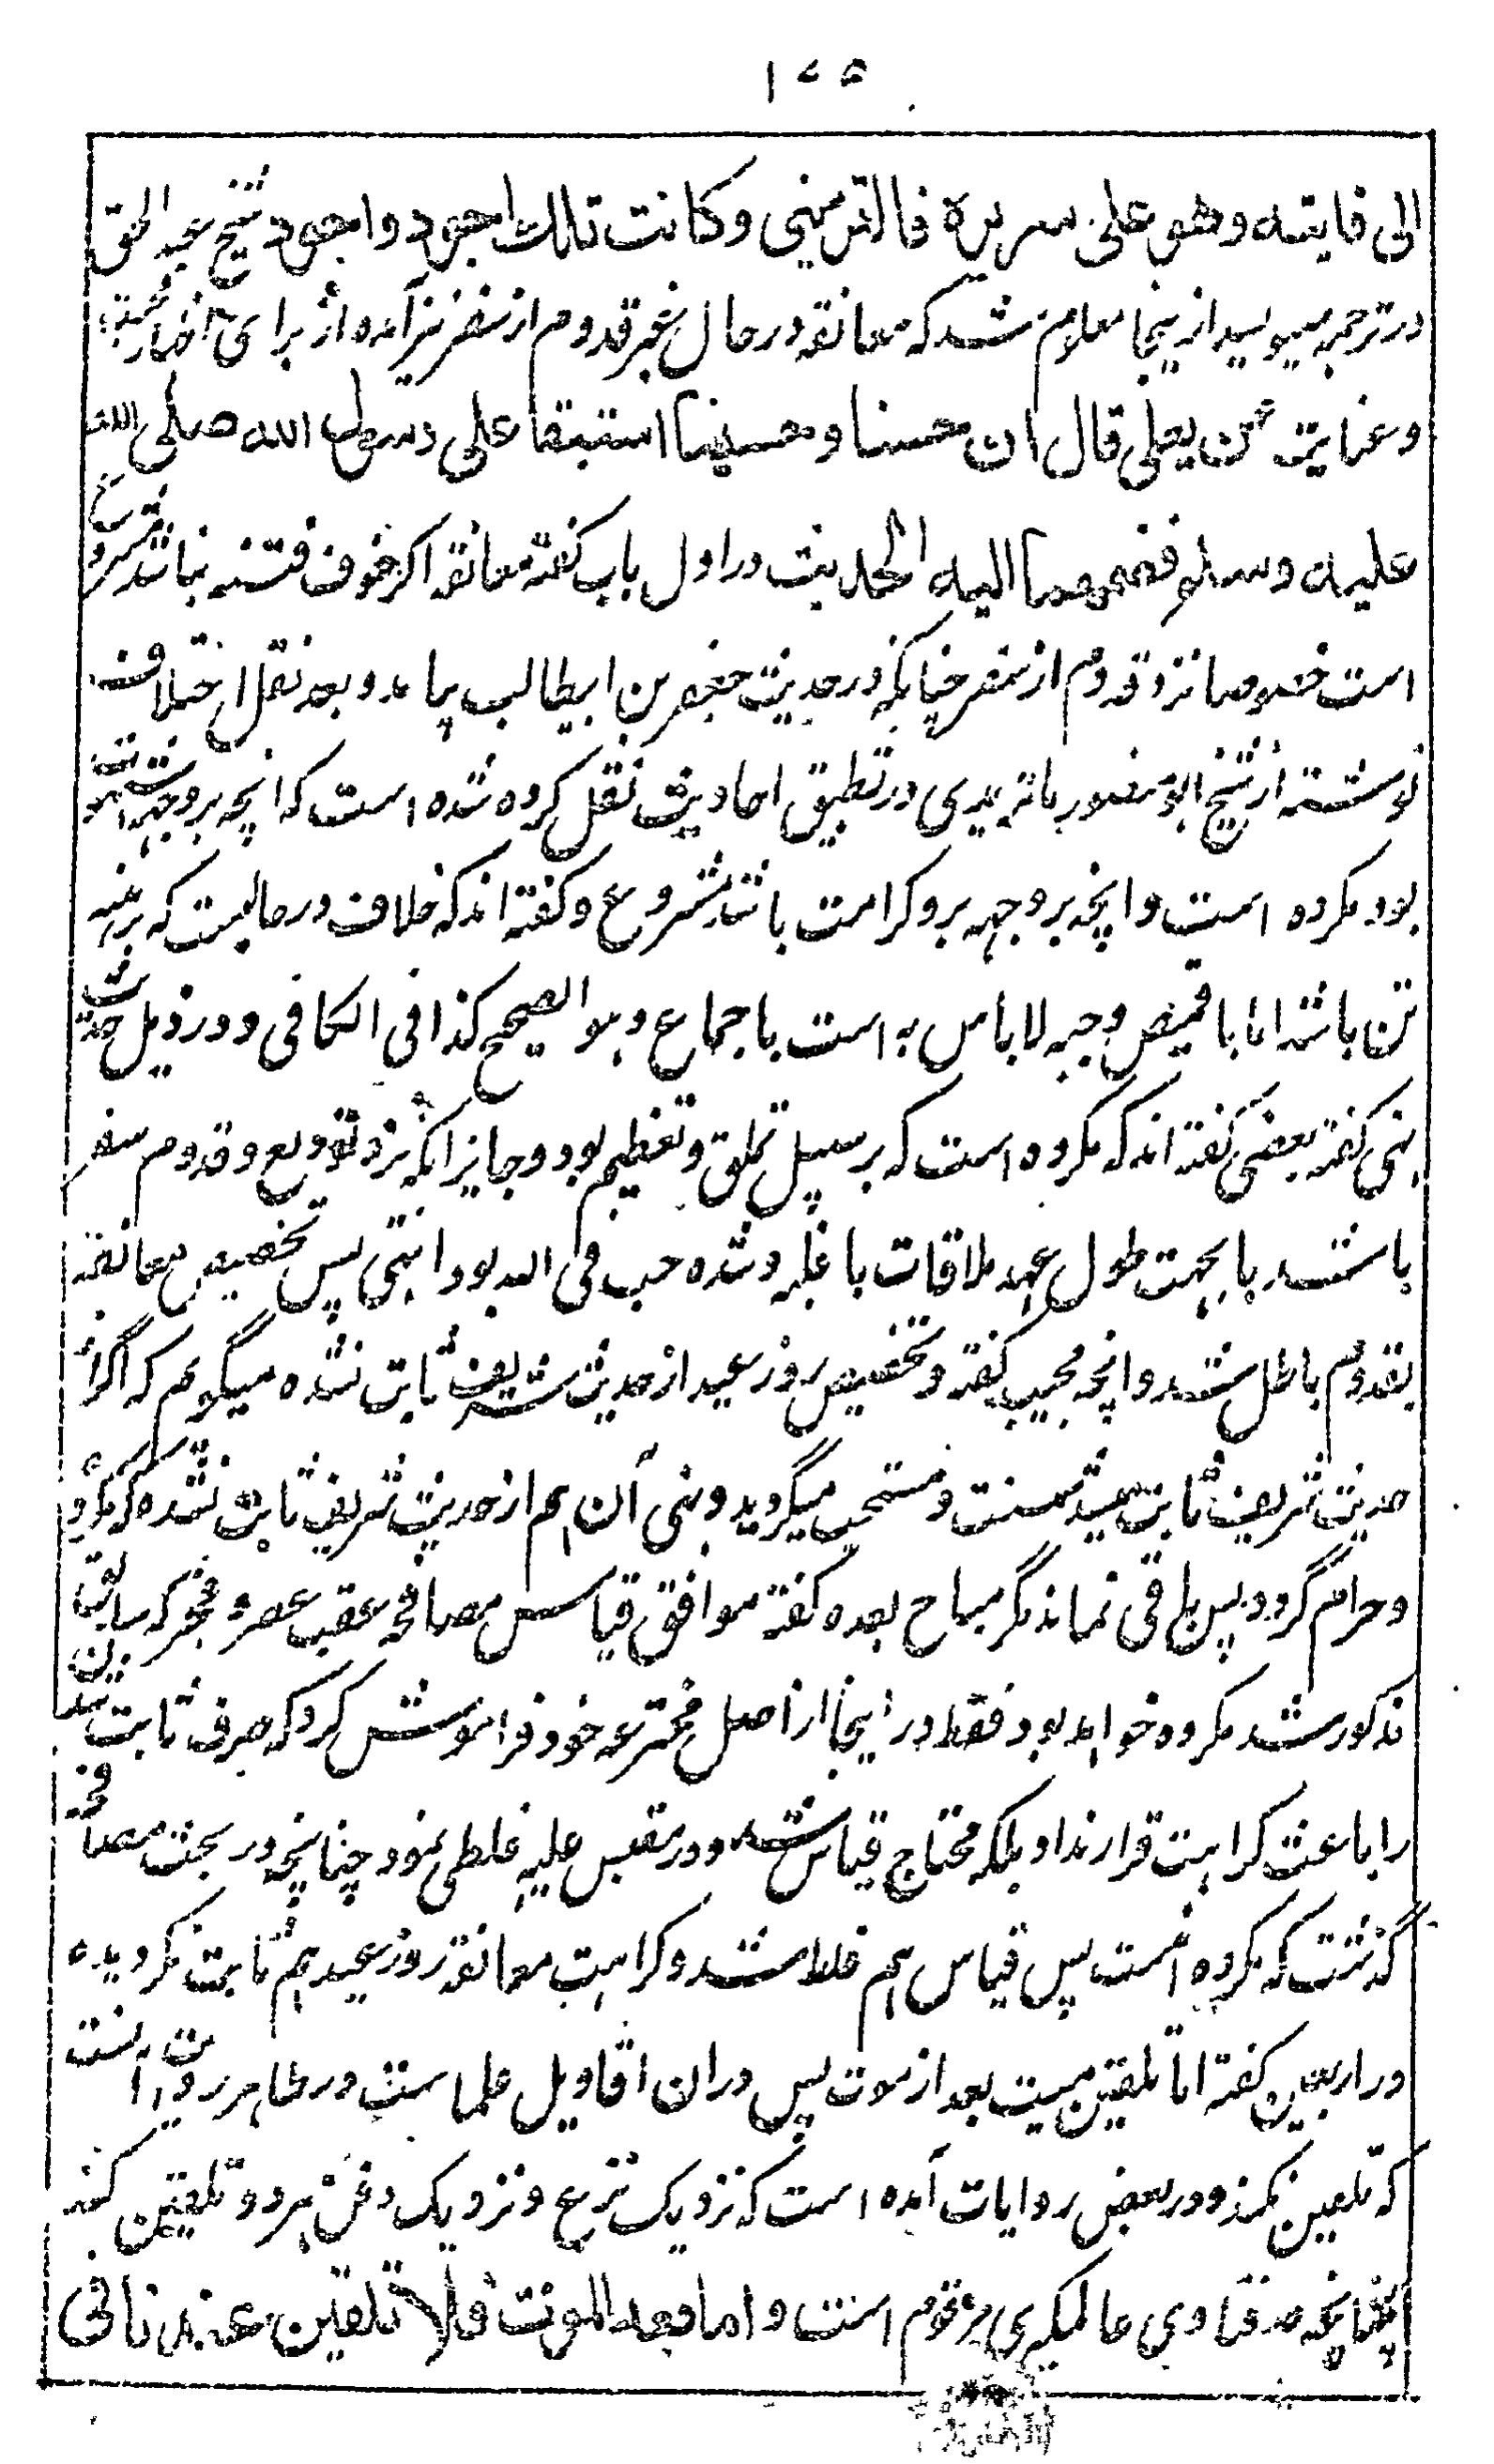 ۱۷۵
الی فاتیته وهو علی سریره فالتزمنی وکانت تلک اجود واجود شیخ عبد الحق
در ترجمه مینویسد از ینجا معلوم شد که معانقه در حال غیر قدوم از سفر نیز آمده از برای اظهار محبت
و عنایت عن یعلی قال ان حسنا وحسینا استبقا علی رسول الله صلی الله
علیه وسلم فضمهما الیه الحدیث در اول باب گفته معانقه اگر خوف فتنه نباشد مشروع
است خصوصا نزد قدوم از سفر چنانکه در حدیث جعفر بن ابیطالب بیاید و بعد نقل اختلاف
نوشته از شیخ ابو منصور ماتریدی در تطبیق احادیث نقل کرده شده است که انچه بر وجهه شهوت
بود مکروه است و انچه بر وجهه بر و کرامت باشد مشروع و گفته اند که خلاف در حالیست که برهنه
تن باشد اما با قمیص و جبه لا باس به است باجماع و هو الصحیح کذا فی الکافی و در ذیل حدیث
نهی گفته بعضی گفته اند که مکروه است که بر سبیل تملق و تعظیم بود و جایز انکه نزد تودیع و قدوم سفر
باشد یا بجهت طول عهد ملاقات یا غلبه و شده حب فی الله بود انتهی پس تخصیص معانقه
بقدوم باطل شد و انچه مجیب گفته و تخصیص روز عید از حدیث شریف ثابت نشده میگویم که اگر از
حدیث شریف ثابت میشد سنت و مستحب میگردید و نهی آن هم از حدیث شریف ثابت نشده که مکروه
و حرام گردد پس باقی نماند مگر مباح بعده گفته موافق قیاس مصافحه عقب عصر و فجر که سابق
مذکور شد مکروه خواهد بود فقط در اینجا از اصل مخترعه خود فراموش کرد که صرف ثابت نشدن
را باعث کراهت قرار نداد بلکه محتاج قیاس شد و در مقیس علیه غلطی نمود چنانچه در بحث مصافحه
گذشت که مکروه نیست پس قیاس هم غلط شد و کراهت معانقه روز عید هم ثابت نگردیده
در اربعین گفته اما تلقین میت بعد از موت پس دران اقاویل علماست در ظاهر روایت آنست
که تلقین نکنند و در بعض روایات آمده است که نزدیک نزع و نزدیک دفن هر دو تلقین کنند
چنانچه در فتاوی عالمگیری مرقوم است واما بعد الموت فلا تلقین عندنا فی